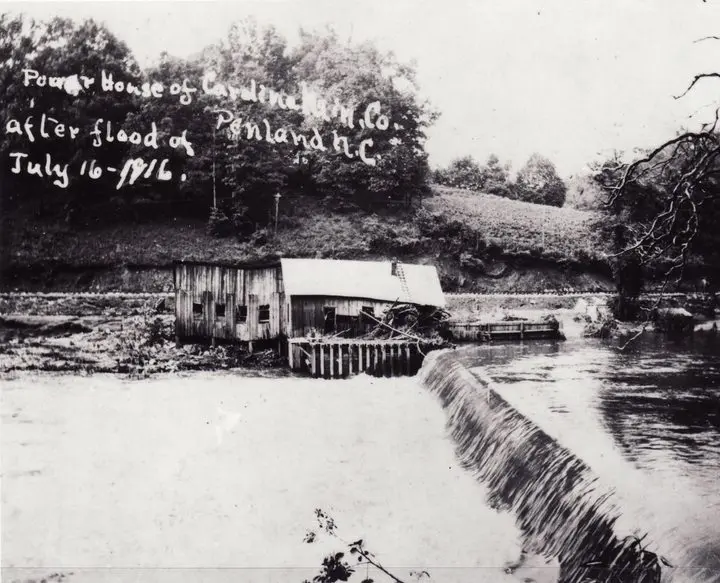 Power House of Cardinal M. Co.
after flood of Penland N.C.
July 16-1916.